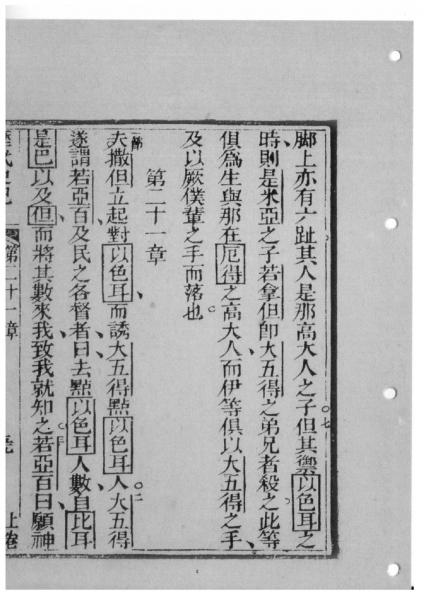 脚上亦有六趾其人是那高大人之子○七但其禦以色耳之
時則是米亞之子若拿但卽大五得之弟兄者殺之此等
俱爲生與那在厄得之高大人而伊等俱以大五得之手
及以厥僕輩之手而落也
第二十一章
一節夫撒但立起對以色耳而誘大五得點以色耳人○二大五得
遂謂若亞百及民之各督者曰去點以色耳人數自比耳
是巴以及但而將其數來我致我就知之○三若亞百曰願神
第二十一章